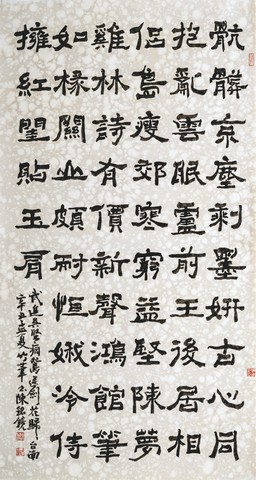 骯髒京塵剩墨妍古心同
抱亂雲眠盧前王後居相
侶島瘦郊寒窮益堅陳夢
雞林詩有價新聲鴻館筆
如椽關山頗耐恒娥冷侍
擁紅閨貼玉肩
武進吳 劍花歸台南
辛丑孟夏竹筆 陳